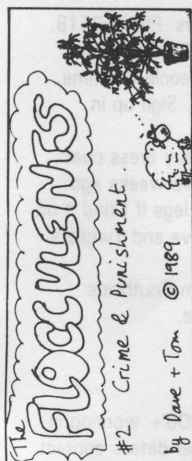 (The
FLOCCULENTS
#1 Crime & Punishment
by Dave + Tom ©1981